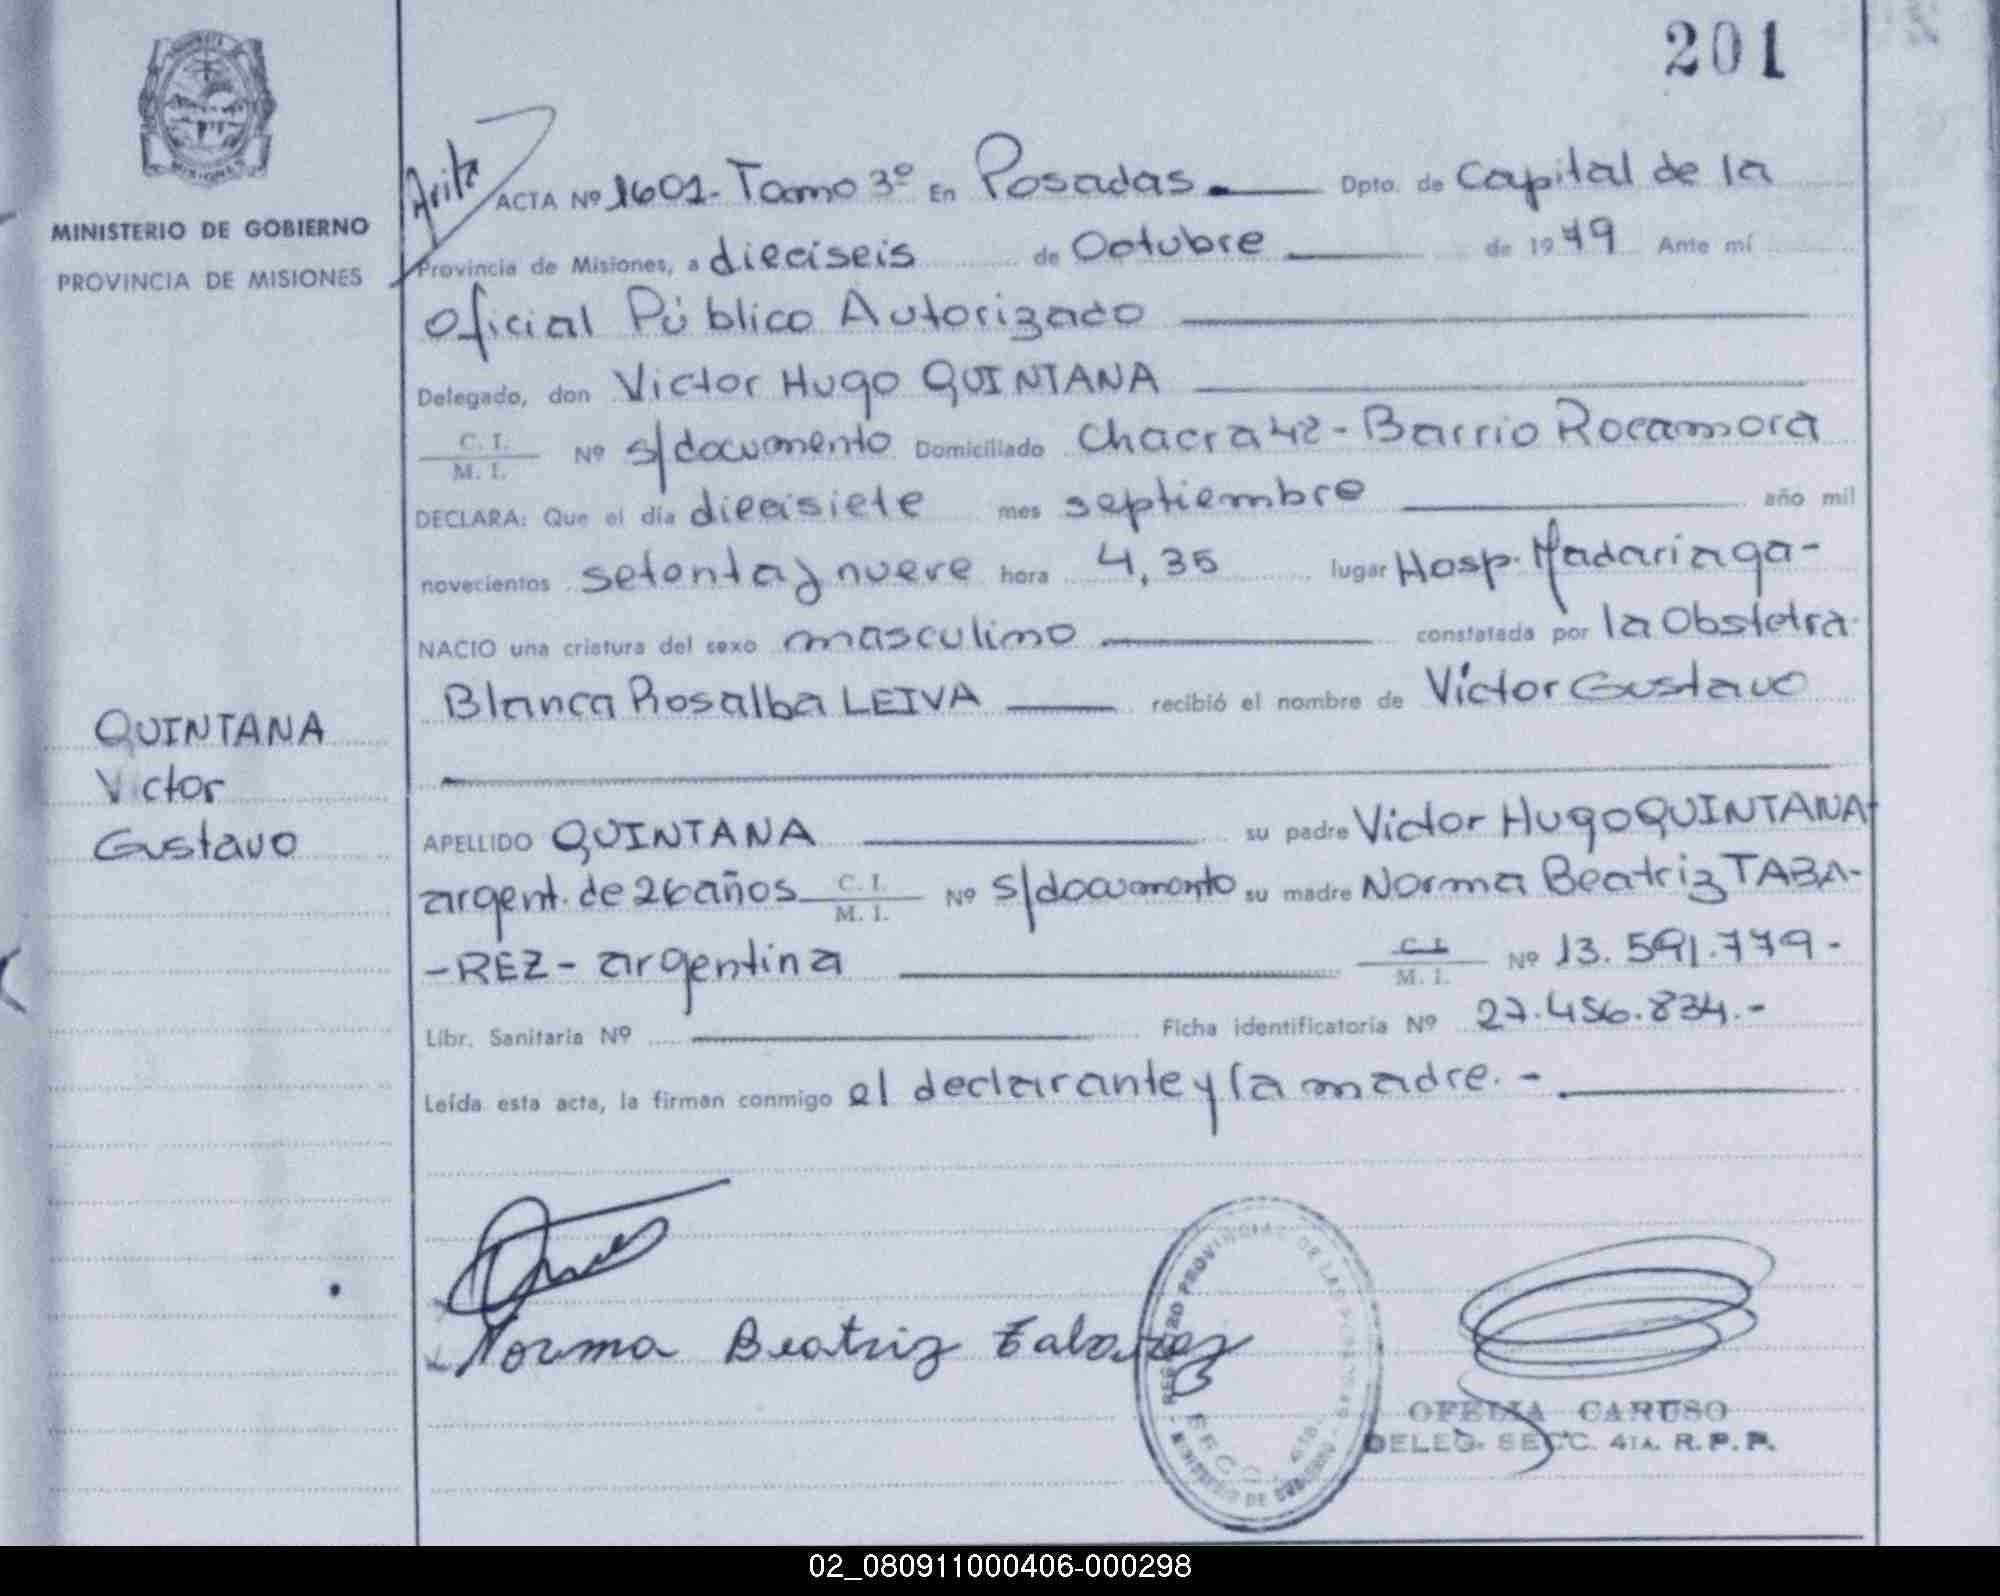 201
MINISTERIO DE GOBIERNO
PROVINCIA DE MISIONES
ACTA Nº 1601- Tomo 3º En Posadas Dpto. de Capital de la
Provincia de Misiones, a dieciseis de Octubre de 1979 Ante mí
Oficial Público Autorizado
Delegado, don Victor Hugo QUINTANA
C. I.
M. I.
Nº s/documento Domiciliado Chacra 42 - Barrio Rocamora
DECLARA: Que el día diecisiete mes septiembre año mil
novecientos setenta y nueve hora 4,35 lugar Hosp. Madariaga-
NACIO una criatura del sexo masculino constatada por la Obstetra
Blanca Rosalba LEIVA recibió el nombre de Víctor Gustavo
QUINTANA
Victor
Gustavo
APELLIDO QUINTANA su padre Victor Hugo QUINTANA
argent. de 26 años C. I. M. I. Nº s/documento su madre Norma Beatriz TABA-
-REZ- argentina C. I. M. I. Nº 13.591.779-
Libr. Sanitaria Nº Ficha identificatoria Nº 27.456.834.-
Leída esta acta, la firman conmigo el declarante y la madre.-
Norma Beatriz Tabarez
REGISTRO PROVINCIAL DE LAS PERSONAS
SECC. 4ta.
MINISTERIO DE GOBIERNO
OFELIA CARUSO
DELEG. SECC. 4TA. R.P.P.
02_080911000406-000298